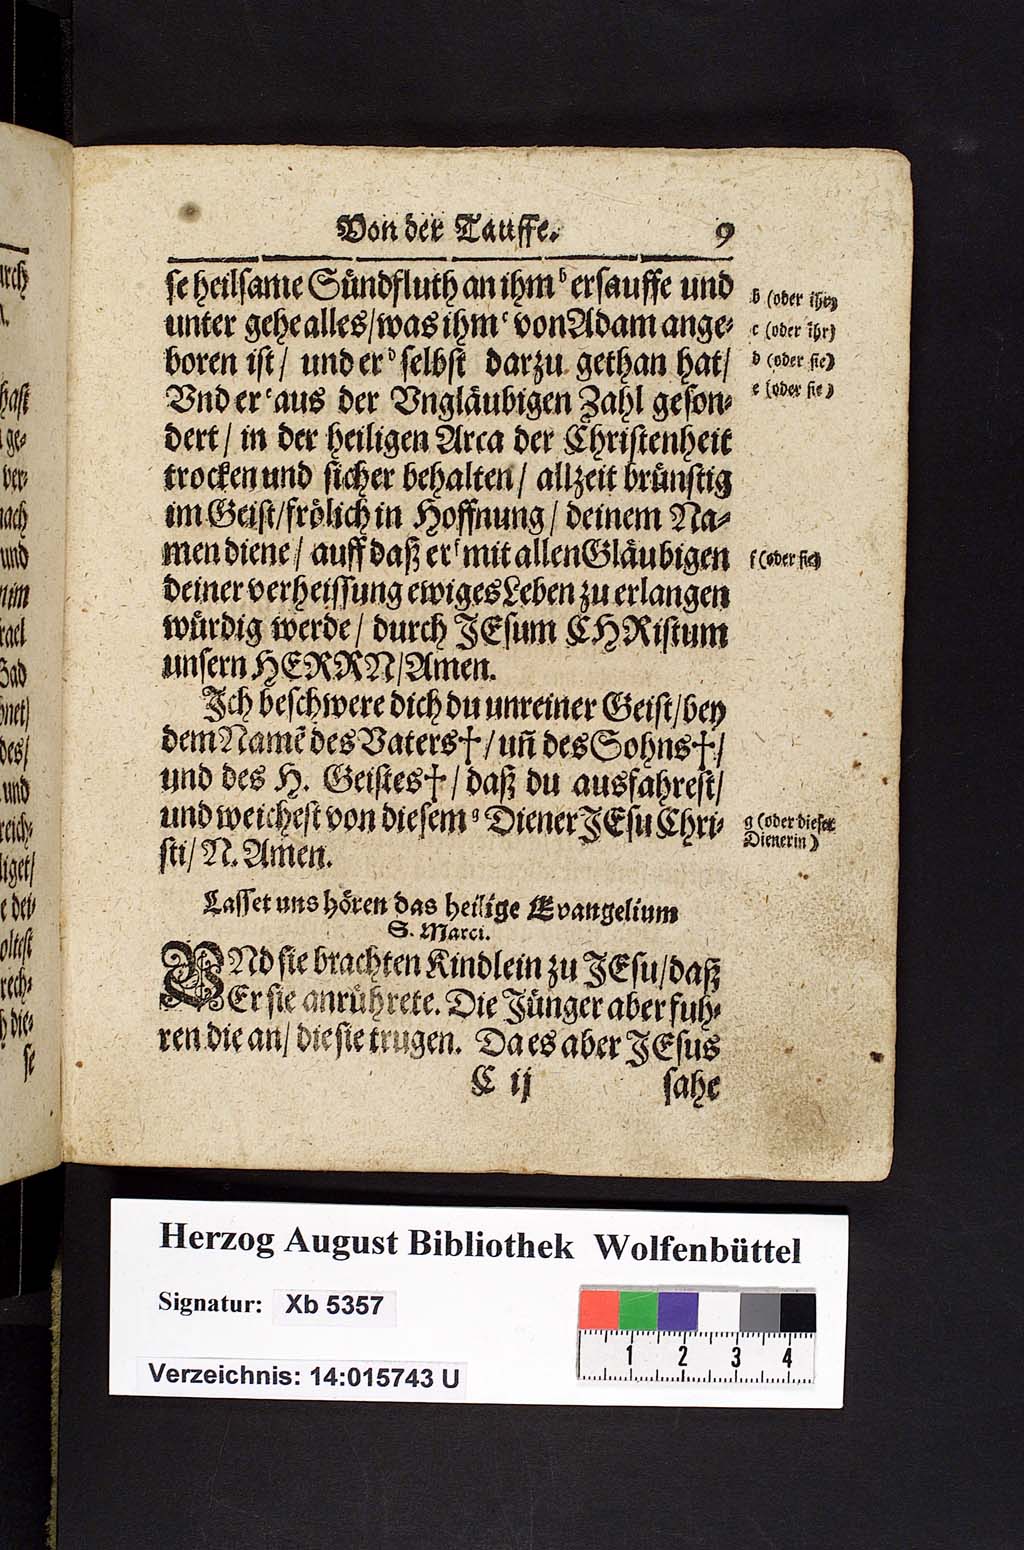 Von der Tauffe. 9
se heilsame Sündfluth an ihm b ersauffe und
unter gehe alles/ was ihm c von Adam ange-
boren ist/ und er d selbst darzu gethan hat/
Vnd er e aus der Vngläubigen Zahl geson-
dert/ in der heiligen Arca der Christenheit
trocken und sicher behalten/ allzeit brünstig
im Geist/ frölich in Hoffnung/ deinem Na-
men diene/ auff daß er f mit allen Gläubigen
deiner verheissung ewiges Leben zu erlangen
würdig werde/ durch JEsum CHRistum
unsern HERRN/ Amen.
Ich beschwere dich du unreiner Geist/ bey
dem Namē des Vaters†/ uñ des Sohns†/
und des H. Geistes†/ daß du ausfahrest/
und weichest von diesem g Diener JEsu Chri-
sti/ N. Amen.
Lasset uns hören das heilige Evangelium
S. Marci.
VNd sie brachten Kindlein zu JEsu/ daß
Er sie anrührete. Die Jünger aber fuh-
ren die an/ die sie trugen. Da es aber JEsus
C ij sahe
b (oder ihr)
c (oder ihr)
d (oder sie)
e (oder sie)
f (oder sie)
g (oder dieser
Dienerin)
rch
hast
ge-
ver-
nach
und
nim
rael
Bad
net/
des/
und
reich-
liget/
e dei-
oltest
rech-
h die-
se
Herzog August Bibliothek Wolfenbüttel
Signatur: Xb 5357
Verzeichnis: 14:015743 U
1 2 3 4